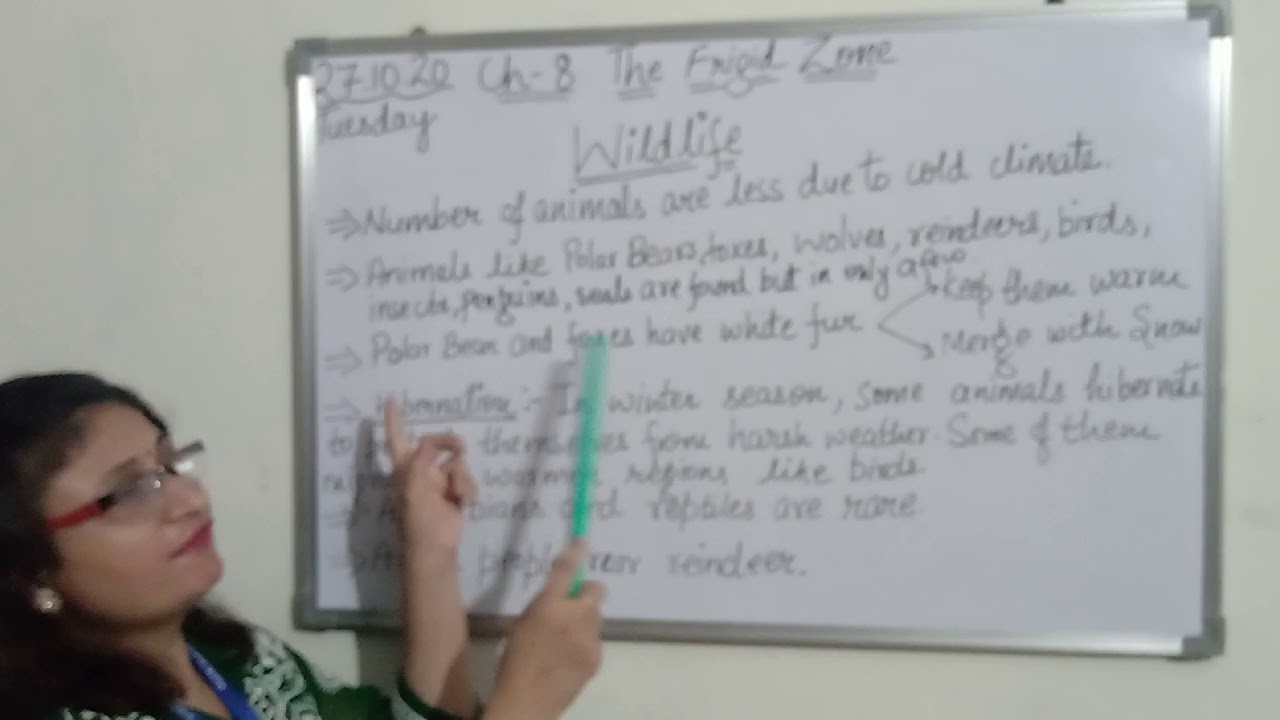 27.10.20 Ch-8 The Frigid Zone
Tuesday
Wildlife
⇒ Number of animals are less due to cold climate.
⇒ Animals like Polar Bears, foxes, wolves, reindeers, birds,
insects, penguins, seals are found but in only a few
keep them warm
⇒ Polar Bear and foxes have white fur
Merge with Snow
⇒ Hibernation :- In winter season, some animals hibernate
to themselves from harsh weather. Some of them
warmer regions like birds
⇒ and reptiles are rare
⇒ people rear reindeer.